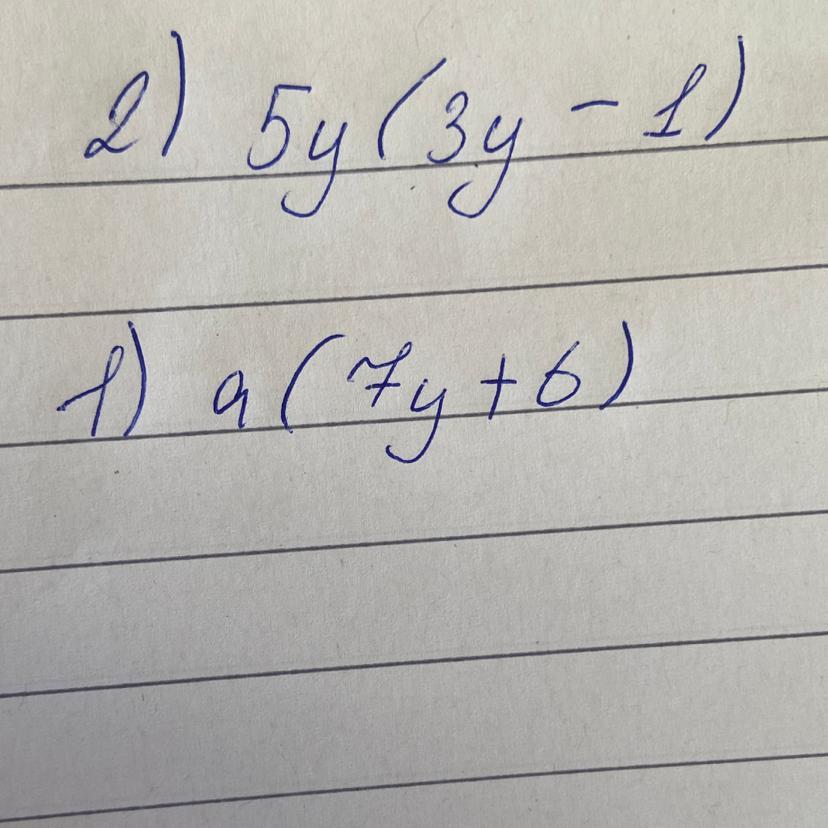 2) 5y(3y - 1)
1) a(7y+6)